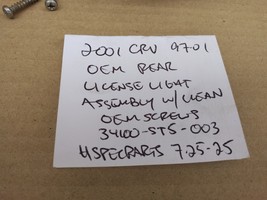 2001 CRV 9701
OEM REAR
LICENSE LIGHT
ASSEMBLY W/ CLEAN
OEM SCREWS
34100-ST5-003
HSPECPARTS 7.25-25